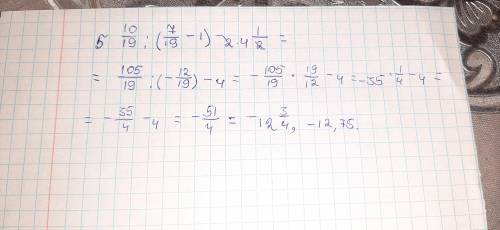 5 10/19 : (7/19 - 1) - 2·4 1/2 =
= 105/19 : (-12/19) - 4 = -105/19 · 19/12 - 4 = -35 · 1/4 - 4 =
= -35/4 - 4 = -51/4 = -12 3/4, -12,75.